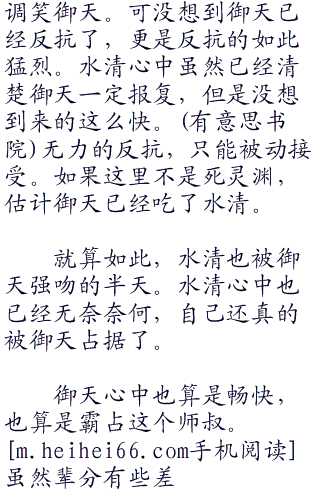 调笑御天。可没想到御天已
经反抗了，更是反抗的如此
猛烈。水清心中虽然已经清
楚御天一定报复，但是没想
到来的这么快。(有意思书
院)无力的反抗，只能被动接
受。如果这里不是死灵渊，
估计御天已经吃了水清。
就算如此，水清也被御
天强吻的半天。水清心中也
已经无奈奈何，自己还真的
被御天占据了。
御天心中也算是畅快，
也算是霸占这个师叔。
[m.heihei66.com手机阅读]
虽然辈分有些差